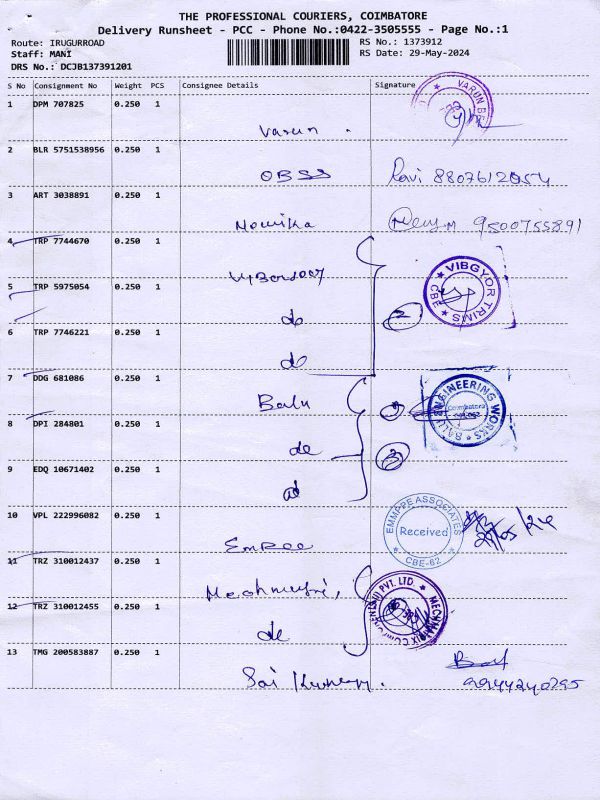 THE PROFESSIONAL COURIERS, COIMBATORE
Delivery Runsheet - PCC - Phone No.:0422-3505555 - Page No.:1
Route: IRUGURROAD
RS No.: 1373912
Staff: MANI
RS Date: 29-May-2024
DRS No.: DCJB137391201
S No Consignment No Weight PCS Consignee Details Signature
1 DPM 707825 0.250 1
Varun
VARUN
2 BLR 5751538956 0.250 1
OBSS
Ravi 8807612054
3 ART 3038891 0.250 1
Nowika
9500755891
4 TRP 7744670 0.250 1
VIBGYOR TRIMS
CBE
5 TRP 5975054 0.250 1
do
2
6 TRP 7746221 0.250 1
do
7 DDG 681086 0.250 1
Balu
BALU ENGINEERING WORKS
Coimbatore
8 DPI 284801 0.250 1
do
3
9 EDQ 10671402 0.250 1
do
10 VPL 222996082 0.250 1
EMMPPE ASSOCIATES
Received
CBE-62
11 TRZ 310012437 0.250 1
PVT. LTD.
12 TRZ 310012455 0.250 1
do
13 TMG 200583887 0.250 1
Sai
9944240295